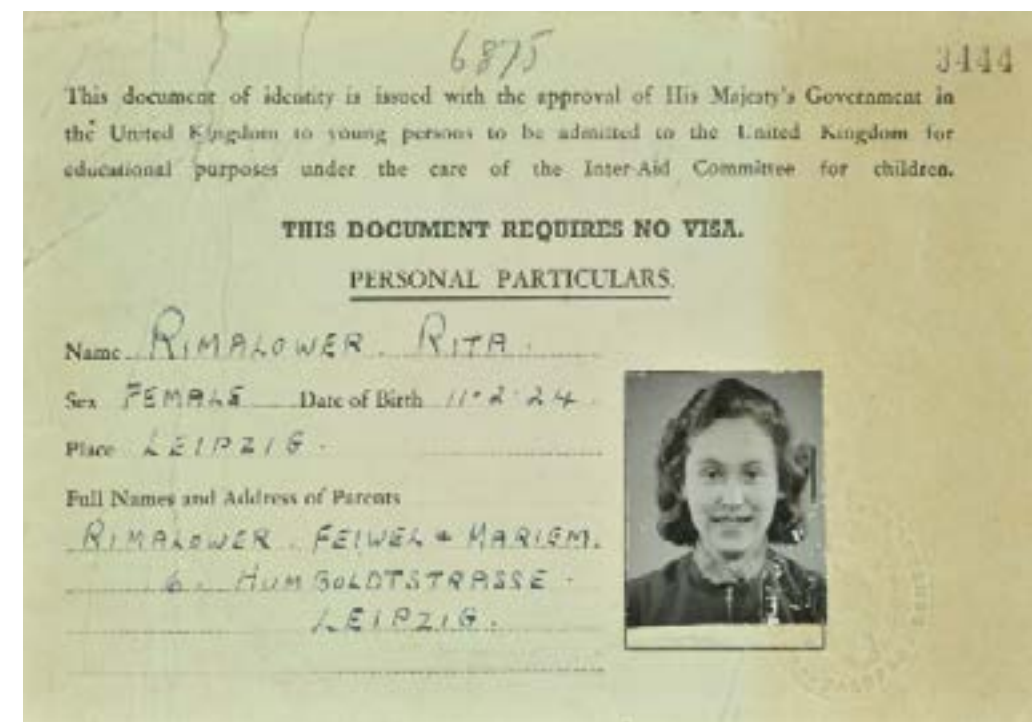 6875
3444
This document of identity is issued with the approval of His Majesty's Government in
the United Kingdom to young persons to be admitted to the United Kingdom for
educational purposes under the care of the Inter-Aid Committee for children.
THIS DOCUMENT REQUIRES NO VISA.
PERSONAL PARTICULARS.
Name RIMALOWER. RITA.
Sex FEMALE Date of Birth 11.2.24.
Place LEIPZIG.
Full Names and Address of Parents
RIMALOWER. FEIWEL & MARIEM.
6. HUMBOLDTSTRASSE.
LEIPZIG.